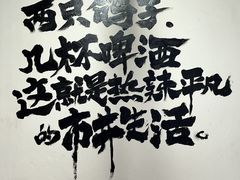 两只鸽子、
几杯啤酒
这就是热辣平凡
的市井生活。